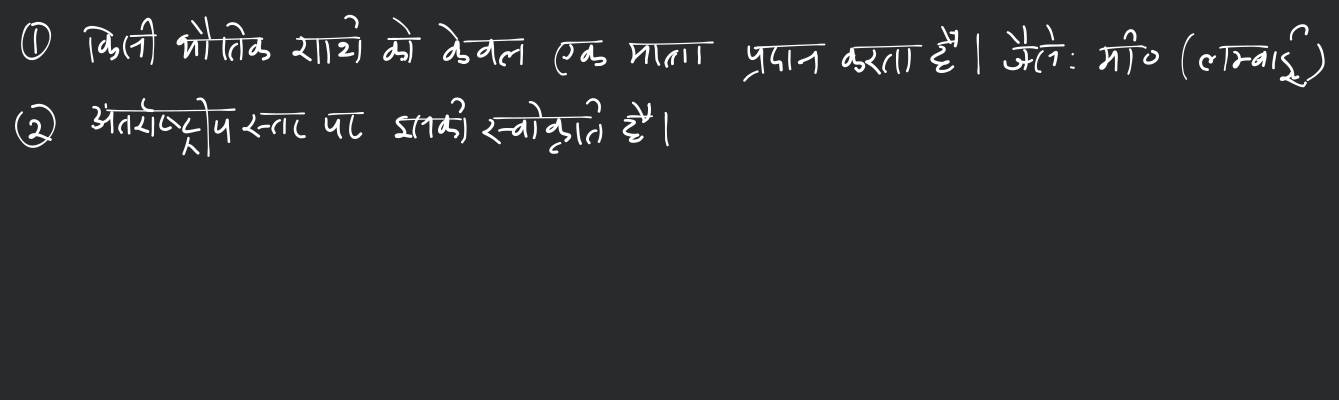 ① किसी भौतिक राशि को केवल एक मात्रा प्रदान करता है। जैसे: मी० (लम्बाई)
② अंतर्राष्ट्रीय स्तर पर इसकी स्वीकृति है।